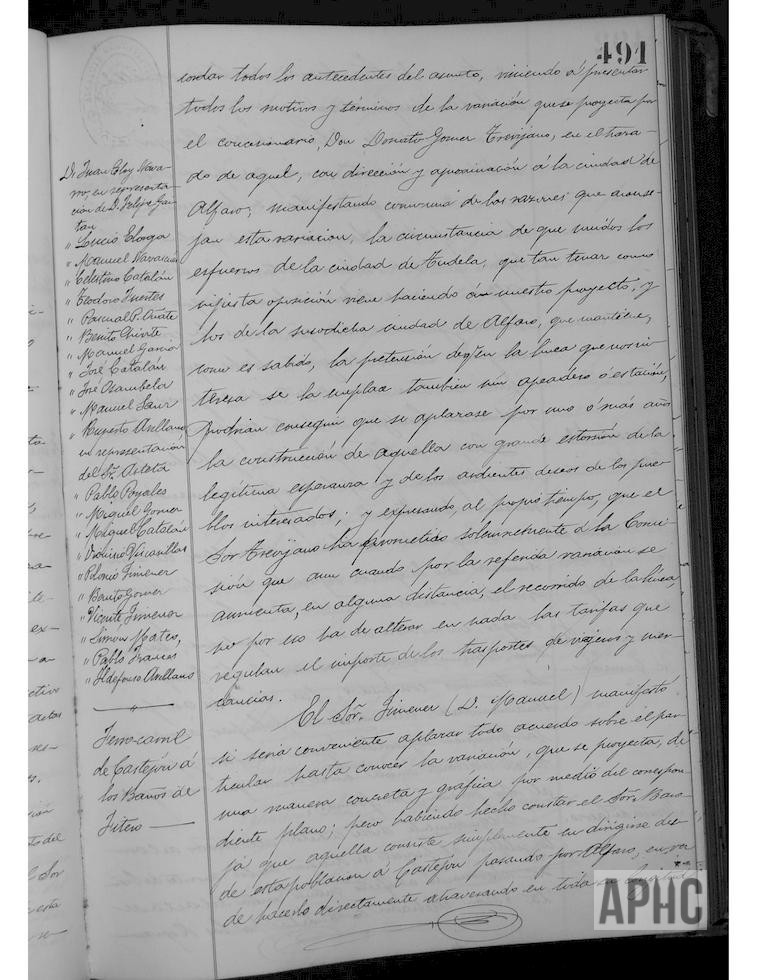 491
cordar todos los antecedentes del asunto, viniendo á presentar
todos los motivos y términos de la variación que se proyecta por
el concesionario, Don Donato Gomez Trevijano, en el traza-
do de aquel, con dirección y aproximación á la ciudad de
Alfaro; manifestando como una de las razones que aconse-
jan esta variacion, la circunstancia de que unidos los
esfuerzos de la ciudad de Tudela, que tan tenaz como
injusta oposición viene haciendo á nuestro proyecto, y
los de la susodicha ciudad de Alfaro, que mantiene,
como es sabido, la pretensión de qe en la linea que nos in-
teresa se la emplace tambien un apeadero ó estación,
podrian conseguir que se aplazase por uno ó más años
la construcción de aquella con grande estorsión de la
legítima esperanza y de los ardientes deseos de los pue-
blos interesados; y expresando, al propio tiempo, que el
Sor Trevijano ha prometido solemnemente á la Comi-
sión que aun cuando por la referida variación se
aumenta, en alguna distancia, el recorrido de la línea,
no por eso ha de alterar en nada las tarifas que
regulan el importe de los trasportes de viajeros y mer-
cancias.
El Sor. Jimenez (D. Manuel) manifestó
si seria conveniente aplazar todo acuerdo sobre el par-
ticular hasta conocer la variación, que se proyecta, de
una manera concreta y gráfica por medio del correspon-
diente plano; pero habiendo hecho constar el Sor.
já que aquella consiste simplemente en dirigirse des-
de esta población á Castejón pasando por Alfaro, en vez
de hacerlo directamente atravesando en toda su
D. Juan Eloy Nava-
rro, en representa-
ción de D. Felipe Gai-
tan
" Lucio Elorza
" Manuel Navascués
" Celestino Catalán
" Teodoro Fuertes
" Pascual P. Oñate
" Benito Chivite
" Manuel Garcia
" José Catalán
" José Osambela
" Manuel Sanz
" Ruperto Arellano
en representación
del Sr.
" Pablo Poyales
" Miguel Gomez
" Miguel Catalán
" Polonio Jimenez
" Benito Gomez
" Vicente Jimenez
" Simón Mateo,
" Pablo Frances
" Ildefonso Arellano
"
Ferro-carril
de Castejón á
los Baños de
Fitero
APHC